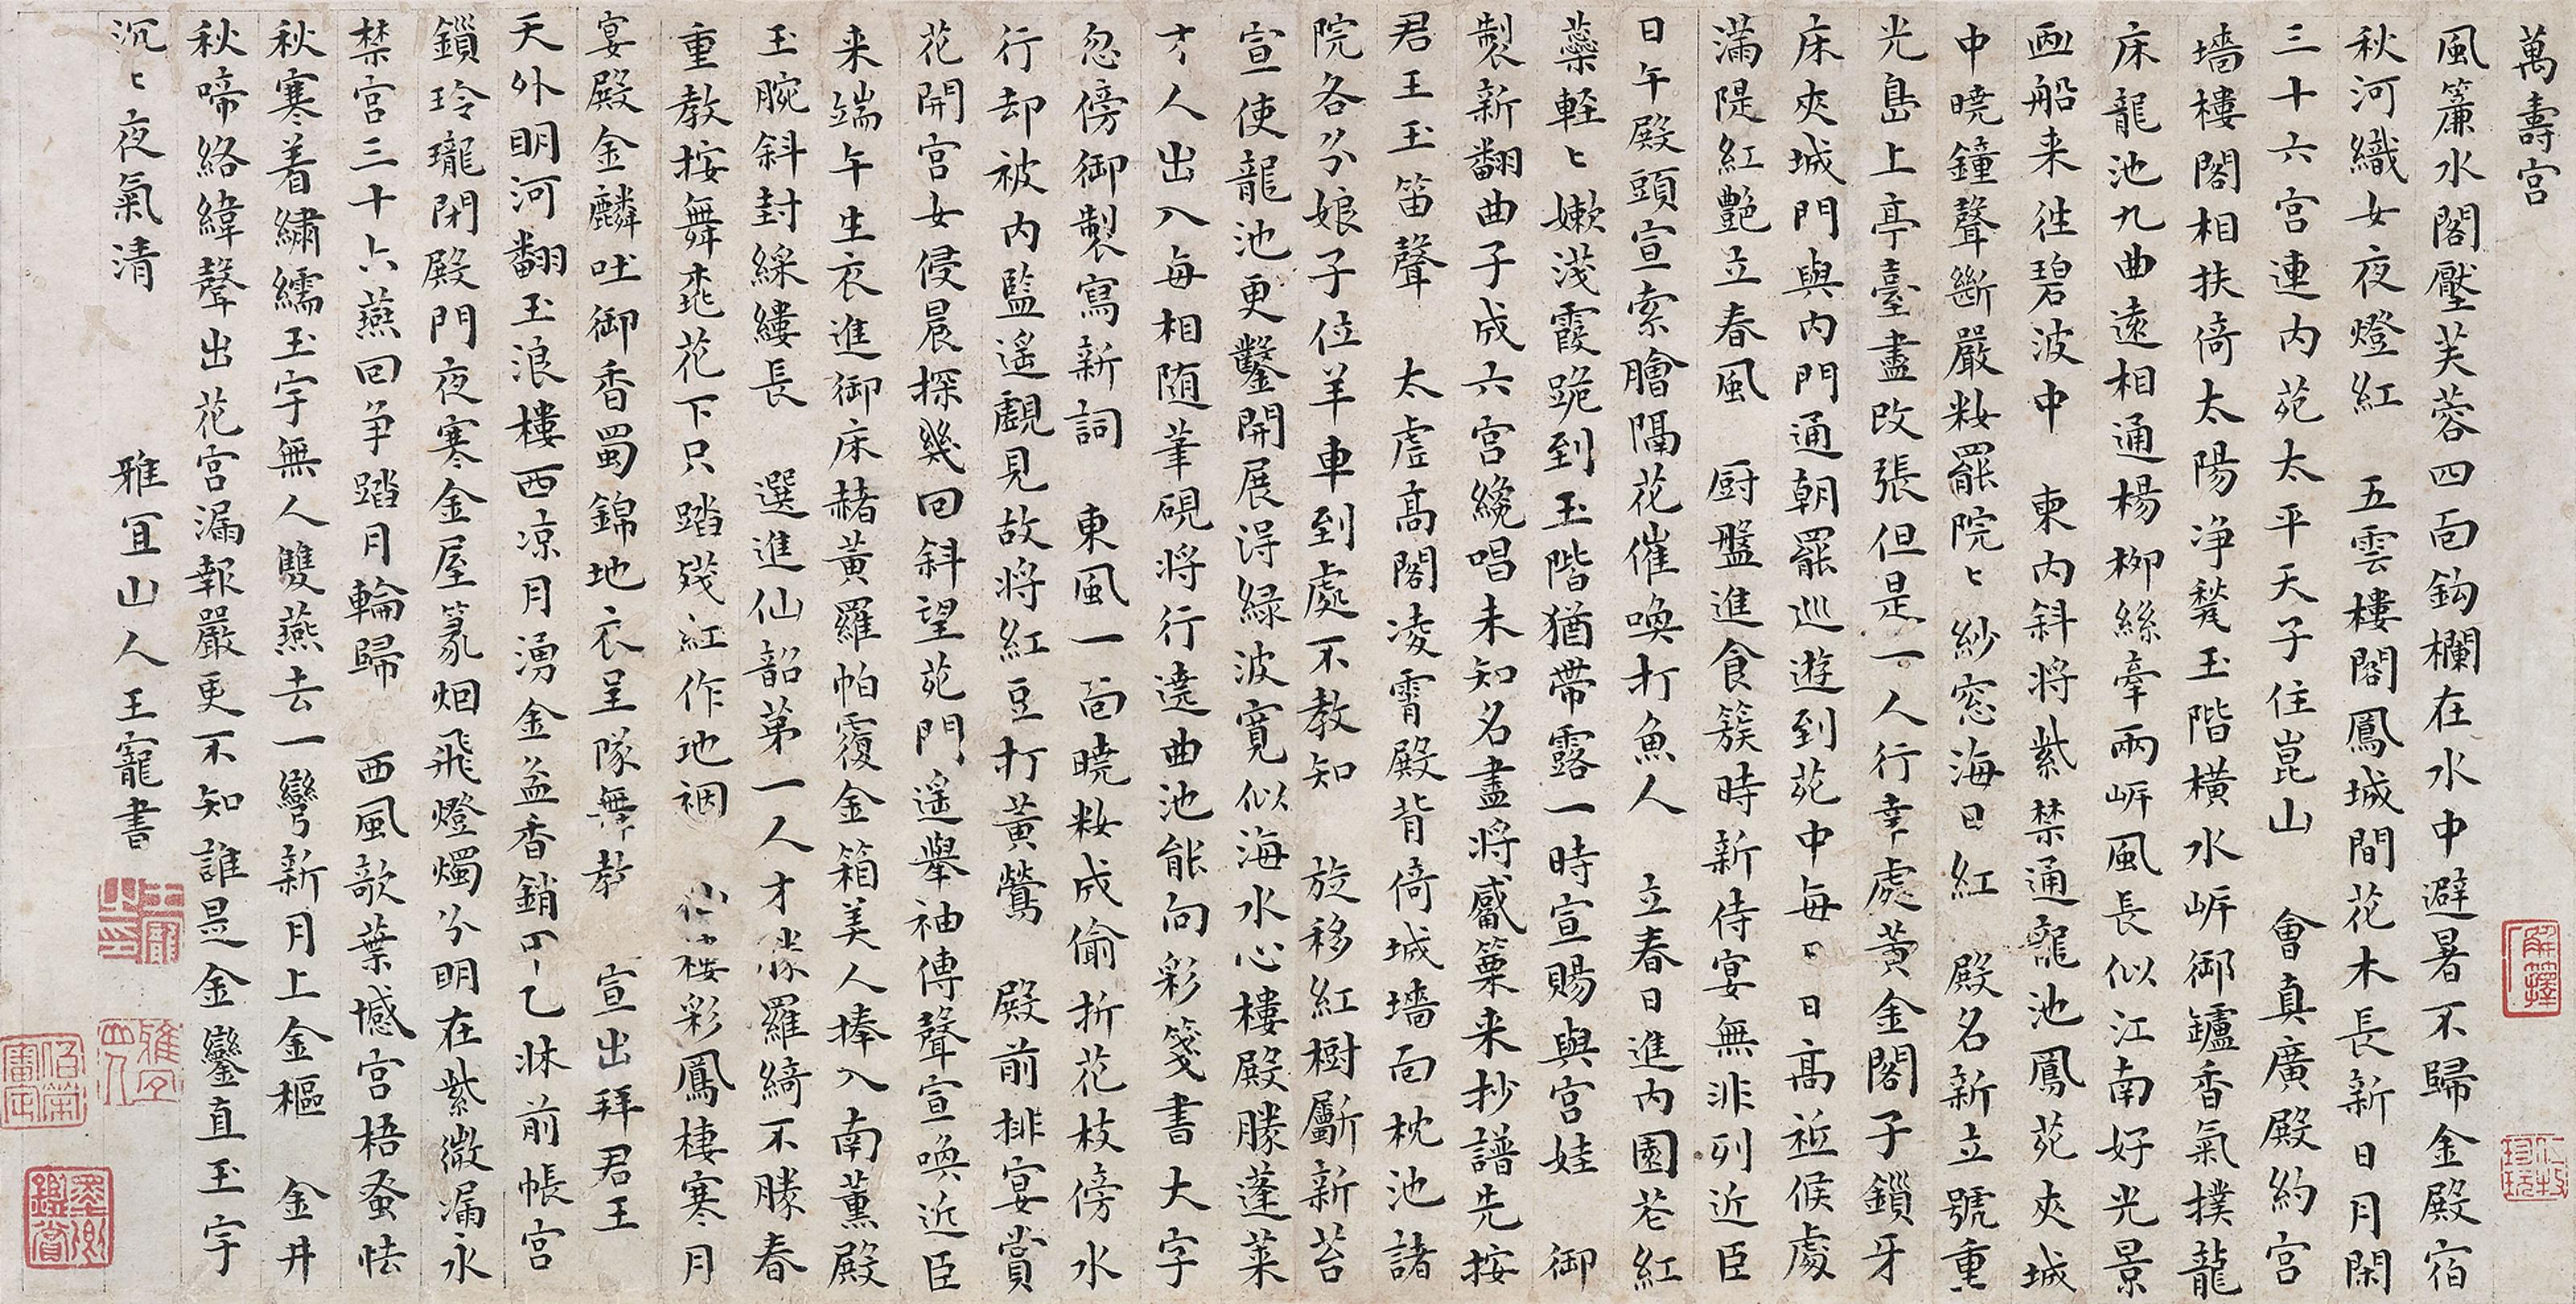 萬壽宮
風簾水閣壓芙蓉四面鈎欄在水中避暑不歸金殿宿
秋河織女夜燈紅　五雲樓閣鳳城間花木長新日月閑
三十六宮連內苑太平天子住崑山　會真廣殿約宮
墻樓閣相扶倚太陽净甃玉階橫水岍御鑪香氣撲龍
床龍池九曲遠相通楊柳絲牽兩岍風長似江南好光景
畫船来往碧波中　東內斜將紫禁通龍池鳳苑夾城
中曉鐘聲斷嚴粧罷院〻紗窓海日紅　殿名新立號重
光島上亭臺盡改張但是一人行幸處黃金閣子鎖牙
床夾城門與內門通朝罷巡遊到苑中每日日高祗候處
滿隄紅艷立春風　厨盤進食簇時新侍宴無非列近臣
日午殿頭宣索膾隔花催喚打魚人　立春日進內園花紅
蘂軽〻嫰淺霞跪到玉階猶帶露一時宣賜與宮娃　御
製新翻曲子成六宮纔唱未知名盡將觱篥来抄譜先按
君王玉笛聲　太虛高閣凌霄殿背倚城墻面枕池諸
院各分娘子位羊車到處不教知　旋移紅樹斸新苔
宣使龍池更鑿開展淂緑波寬似海水心樓殿勝蓬萊
才人出入每相随筆硯將行遶曲池能向彩箋書大字
忽傍御製寫新詞　東風一面曉粧成偷折花枝傍水
行却被內監遙覷見故將紅豆打黃鶯　殿前排宴賞
花開宮女侵晨探幾回斜望苑門遥舉袖傳聲宣喚近臣
来端午生衣進御床赭黃羅帕覆金箱美人捧入南薰殿
玉腕斜封綵縷長　選進仙韶第一人才勝羅綺不勝春
重教按舞桃花下只踏殘紅作地裀　仙樓彩鳳棲寒月
宴殿金麟吐御香蜀錦地衣呈隊舞教　宣出拜君王
天外明河翻玉浪樓西凉月湧金盆香銷甲乙牀前帳宮
鎖玲瓏閉殿門夜寒金屋篆烟飛燈燭分明在紫微漏永
禁宮三十六燕回争踏月輪歸　西風歌葉憾宮梧蚤怯
秋寒着繡繻玉宇無人雙燕去一彎新月上金樞　金井
秋啼絡緯聲出花宮漏報嚴更不知誰是金鑾直玉宇
沉〻夜氣清　雅宜山人王寵書